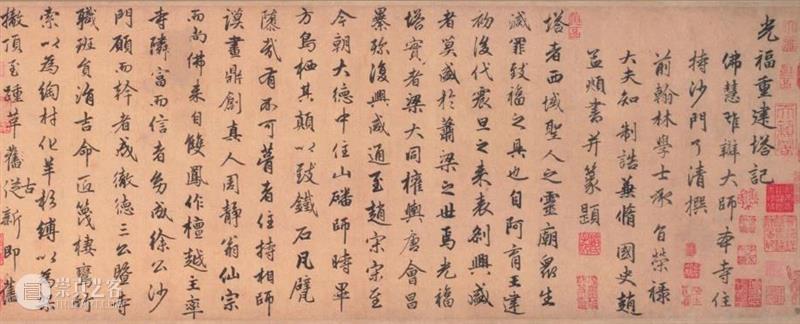 光福重建塔記
佛慧雄辯大師奉寺住
持沙門了清撰
前翰林學士承旨榮祿
大夫知制誥兼脩國史趙
孟頫書并篆題
塔者西域聖人之靈廟衆生
滅罪致福之具也自阿育王建
初後代震旦之來表剎興盛
者莫盛於蕭梁之世焉光福
塔實者梁大同權輿唐會昌
異弥復興咸通至趙宋宗至
今朝大德中住山磻師時畢
方烏栖其顛以致鐵石凡甓
隳哉有不可葺者住持相師
謨畫鼎創真人周靜翁仙宗
而向佛來自雙鳳作檀越王率
寺隣富而信者為成徐公沙
門顧而幹者成徹德三公暨寺
職班負涓吉命匠篾棲
索以為絢村化羊杉縛以為架
撤頂至踵革舊從新即舊
古
崇真艺客